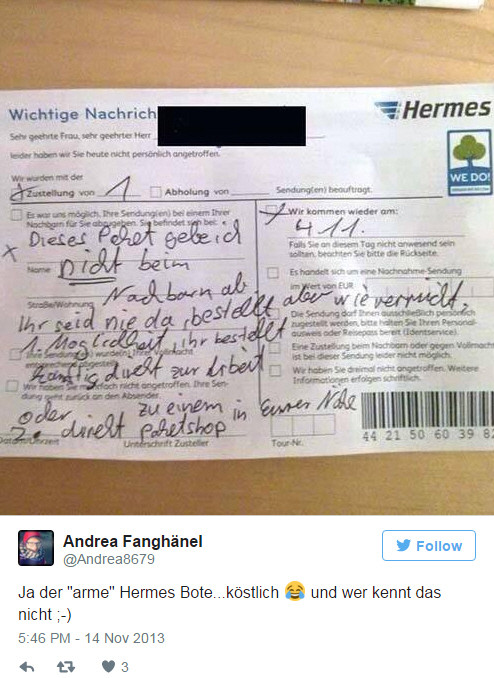 Wichtige Nachrich
Hermes
Sehr geehrte Frau, sehr geehrter Herr
leider haben wir Sie heute nicht persönlich angetroffen.
WE DO!
Wir wurden mit der
Zustellung von 1 Abholung von Sendung(en) beauftragt.
Es war uns möglich, Ihre Sendung(en) bei einem Ihrer
Nachbarn für Sie abzugeben. Sie befindet sich bei:
Wir kommen wieder am:
4 11.
Falls Sie an diesem Tag nicht anwesend sein
sollten, beachten Sie bitte die Rückseite.
x Dieses Paket gebe ich
Name
nicht beim
Es handelt sich um eine Nachnahme-Sendung
im Wert von EUR
Nachbarn ab.
Straße/Wohnung
Ihr seid nie da, bestellt aber wie verrückt.
Die Sendung darf Ihnen ausschließlich persönlich
zugestellt werden, bitte halten Sie Ihren Personal-
ausweis oder Reisepass bereit (Identservice).
1. Möglichkeit, ihr bestellt
Ihre Sendung(en) wurde(n) Ihrer Vollmacht
Eine Zustellung beim Nachbarn oder gegen Vollmacht
ist bei dieser Sendung leider nicht möglich.
künftig direkt zur Arbeit
Wir haben Sie mehrfach nicht angetroffen. Ihre Sen-
dung geht zurück an den Absender.
Wir haben Sie dreimal nicht angetroffen. Weitere
Informationen erfolgen schriftlich.
oder zu einem in Eurer Nähe
2. direkt paketshop
Datum/Uhrzeit Unterschrift Zusteller Tour-Nr.
44 21 50 60 39 82
Andrea Fanghänel
@Andrea8679
Follow
Ja der "arme" Hermes Bote...köstlich 😂 und wer kennt das
nicht ;-)
5:46 PM - 14 Nov 2013
3